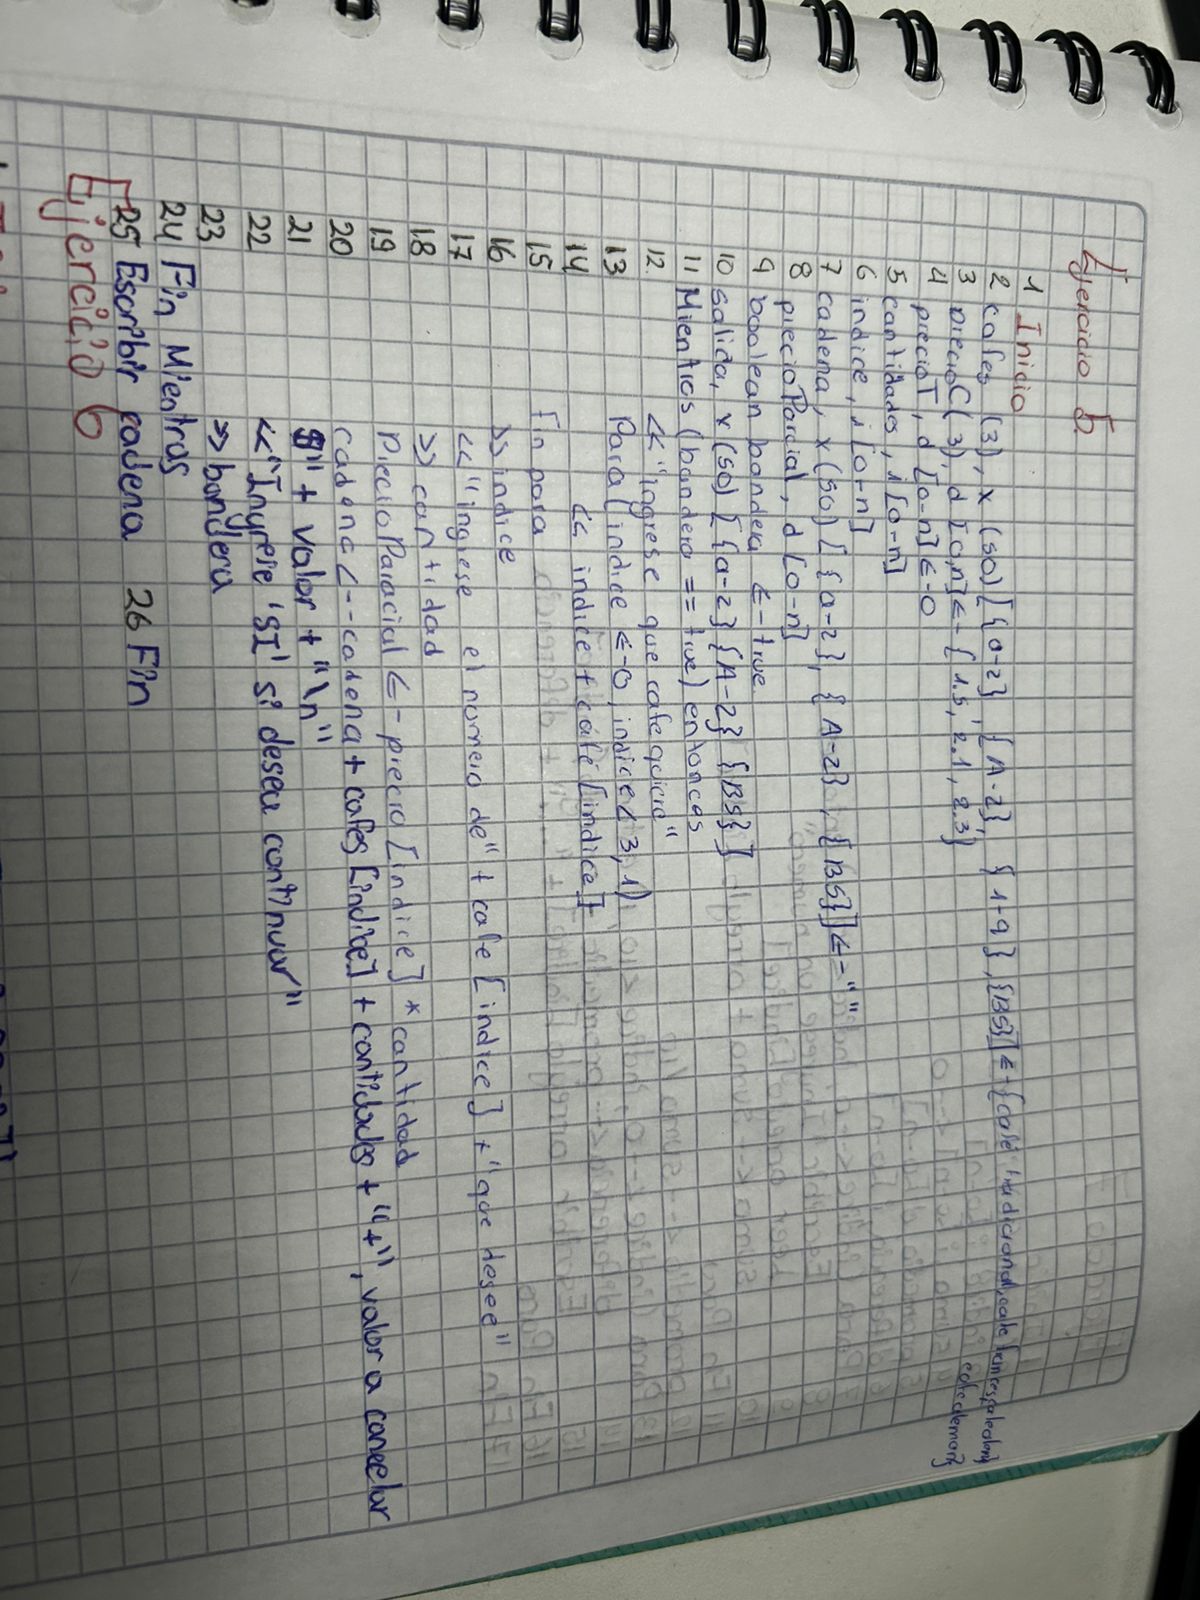 Ejercicio 5.
1 Inicio
2 cafes (3), x (50) [{a-z}, {A-z}, {1+9}, {BS}] <-{café tradicional, cafe frances,
cafe alemon}
3 precioC (3), d [0,n] <- {1.5, 2.1, 2.3}
4 precioT, d [0-n] <-0
5 cantidades, i [0-n]
6 indice, i [0-n]
7 cadena, x (50) [{a-z}, {A-z}, {BS}] <-" "
8 precioParcial, d [0-n]
9 boolean bandera <-true
10 salida, x (50) [{a-z} {A-z} {BS}]
11 Mientras (bandera == true) entonces
12 << "ingrese que cafe quiere"
13 Para (indice <-0, indice < 3, 1)
14 << indice + café [indice] +
15 Fin para
16 >> indice
17 << "ingrese el numero de" + cafe [indice] + "que desee"
18 >> cantidad
19 PrecioParacial <- precio [indice] * cantidad
20 cadena <--cadena + cafes [indice] + cantidades + "+", valor a cancelar
21 $" + valor + "\n"
22 <<"Ingrese 'SI' si desea continuar"
23 >> bandera
24 Fin Mientras
25 Escribir cadena 26 Fin
Ejercicio 6